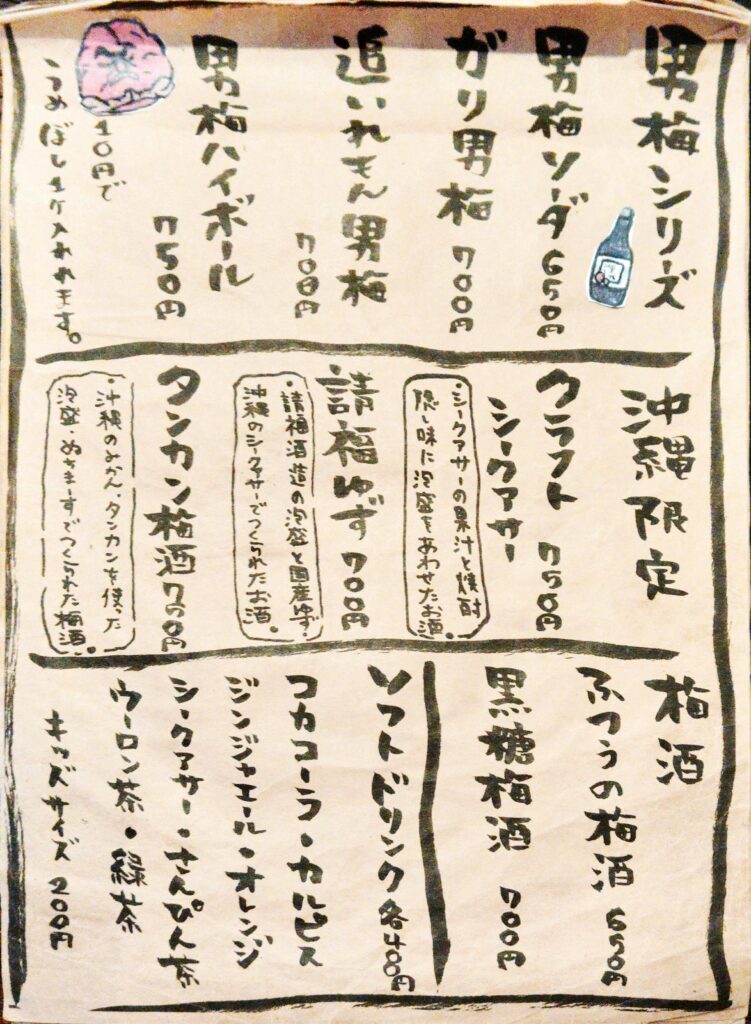 男梅シリーズ
男梅ソーダ 650円
ガリ男梅 700円
追いれもん男梅
700円
男梅ハイボール
750円
10円で
うめぼし1ケ入れれます。
沖縄限定
クラフト
シークアサー 750円
・シークアサーの果汁と焼酎
隠し味に泡盛をあわせたお酒。
請福ゆず 700円
・請福酒造の泡盛と国産ゆず・
沖縄のシークアサーでつくられたお酒。
タンカン梅酒 750円
・沖縄のみかん、タンカンを使った
泡盛・ぬちまーすでつくられた梅酒。
梅酒
ふつうの梅酒 650円
黒糖梅酒 700円
ソフトドリンク 各400円
コカコーラ・カルピス
ジンジャエール・オレンジ
シークアサー・さんぴん茶
ウーロン茶・緑茶
キッズサイズ 200円